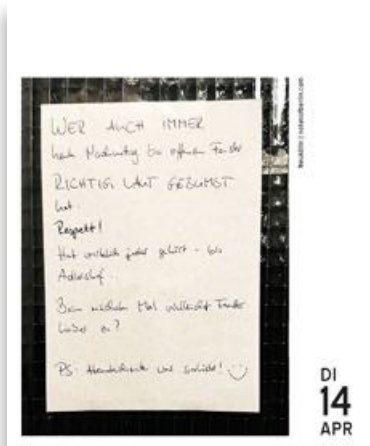 WER AUCH IMMER
heute Nachmittag bei offenem Fenster
RICHTIG LAUT GEBUMST
hat.
Respekt!
Hat wirklich jeder gehört - bis
Adlershof..
Beim nächsten Mal vielleicht Fenster
lieber zu?
PS: War !
Neukölln | notesofberlin.com
DI
14
APR